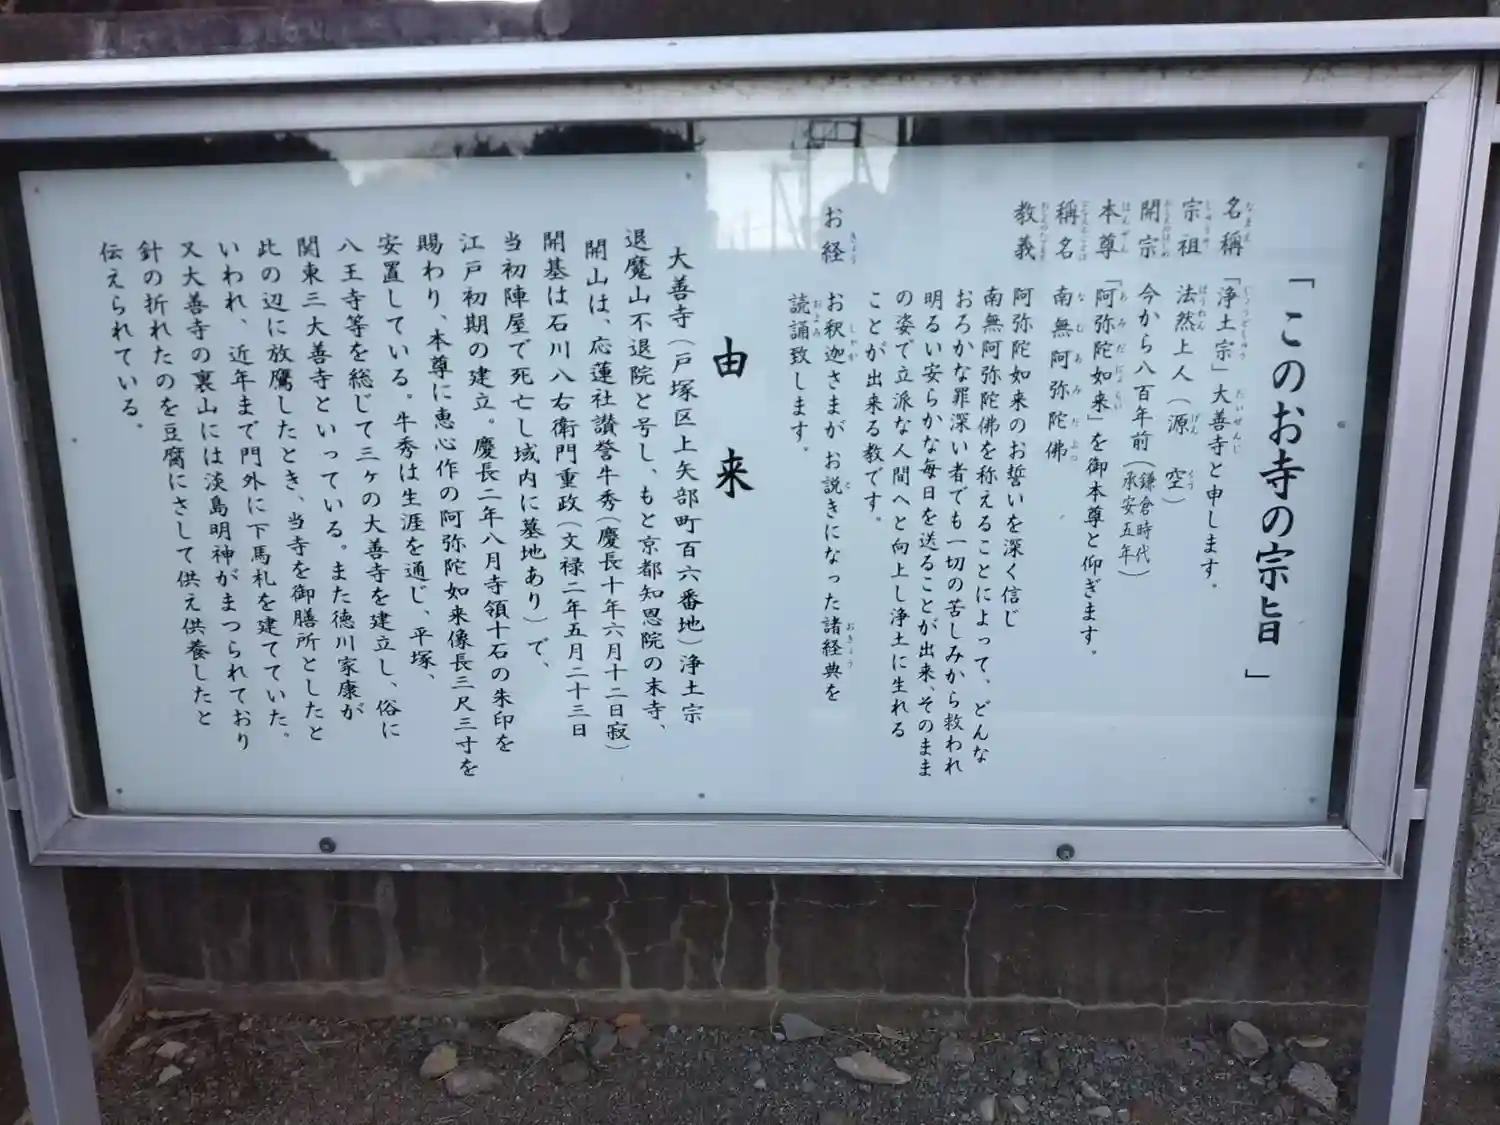 「このお寺の宗旨」
名稱 「浄土宗」大善寺と申します。
宗祖 法然上人（源 空）
開宗 今から八百年前（鎌倉時代 承安五年）
本尊 「阿弥陀如来」を御本尊と仰ぎます。
稱名 南無阿弥陀佛
教義 阿弥陀如来のお誓いを深く信じ
南無阿弥陀佛を称えることによって、どんな
おろかな罪深い者でも一切の苦しみから救われ
明るい安らかな毎日を送ることが出来、そのまま
の姿で立派な人間へと向上し浄土に生れる
ことが出来る教です。
お経 お釈迦さまが お説きになった諸経典を
読誦致します。
由来
大善寺（戸塚区上矢部町百六番地）浄土宗
退魔山不退院と号し、もと京都知恩院の末寺、
開山は、応蓮社讃誉牛秀（慶長十年六月十二日寂）
開基は石川八右衛門重政（文禄二年五月二十三日
当初陣屋で死亡し域内に墓地あり）で、
江戸初期の建立。慶長二年八月寺領十石の朱印を
賜わり、本尊に恵心作の阿弥陀如来像長三尺三寸を
安置している。牛秀は生涯を通じ、平塚、
八王寺等を総じて三ヶの大善寺を建立し、俗に
関東三大善寺といっている。また徳川家康が
此の辺に放鷹したとき、当寺を御膳所としたと
いわれ、近年まで門外に下馬札を建てていた。
又大善寺の裏山には淡島明神がまつられており
針の折れたのを豆腐にさして供え供養したと
伝えられている。